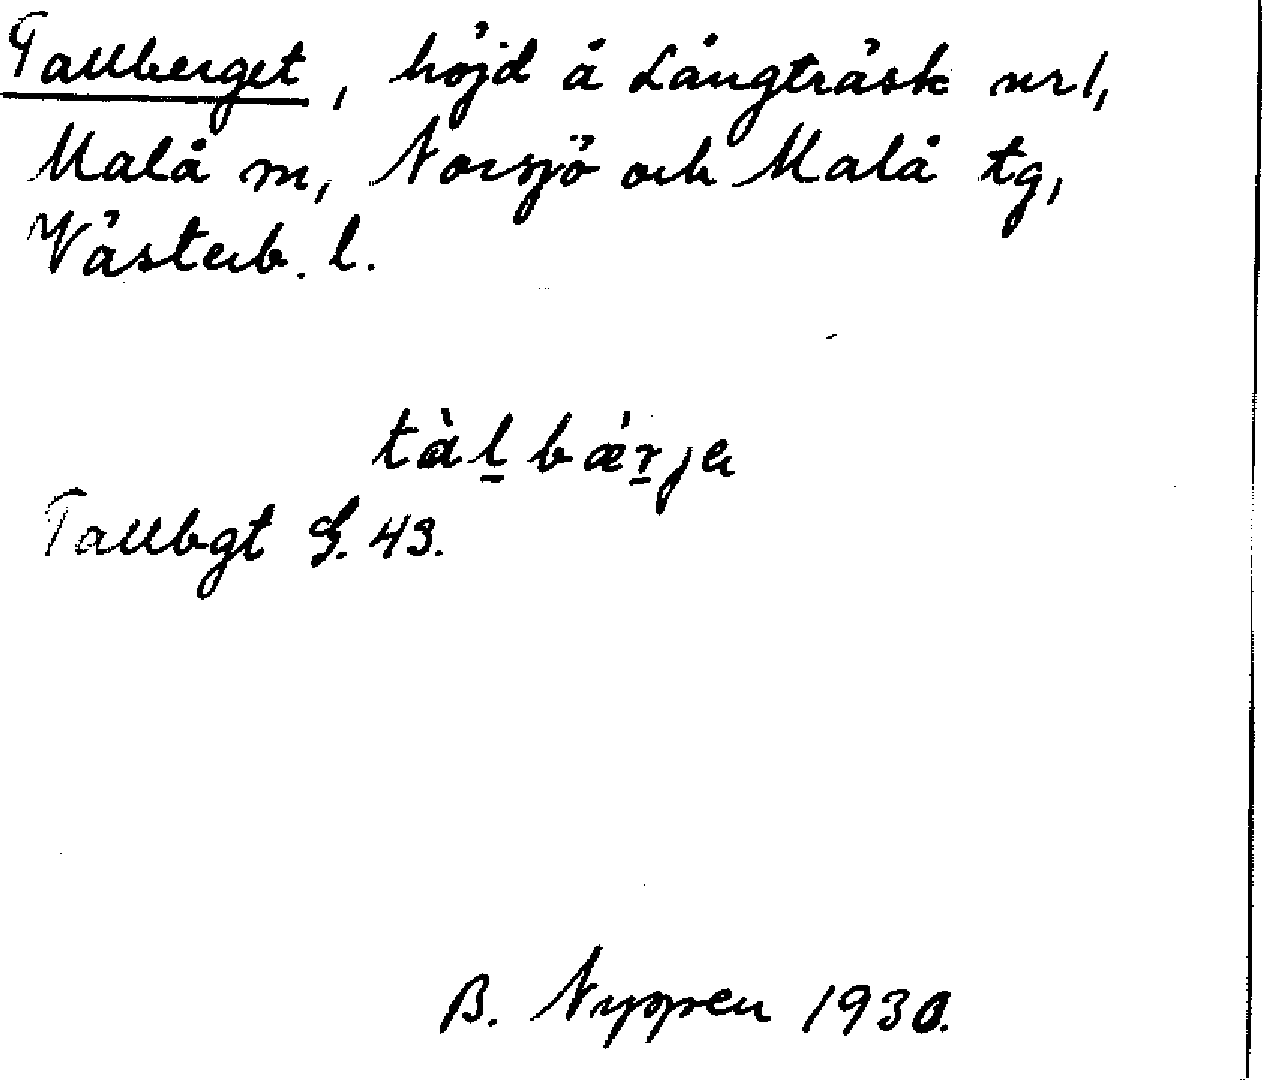 Tallberget, höjd å Långträsk nr 1,
Malå m, Norsjö och Malå tg,
Västerb. l.
tàl̲ bǽr̲ja
Tallbgt S. 43.
B. Nyppen 1930.